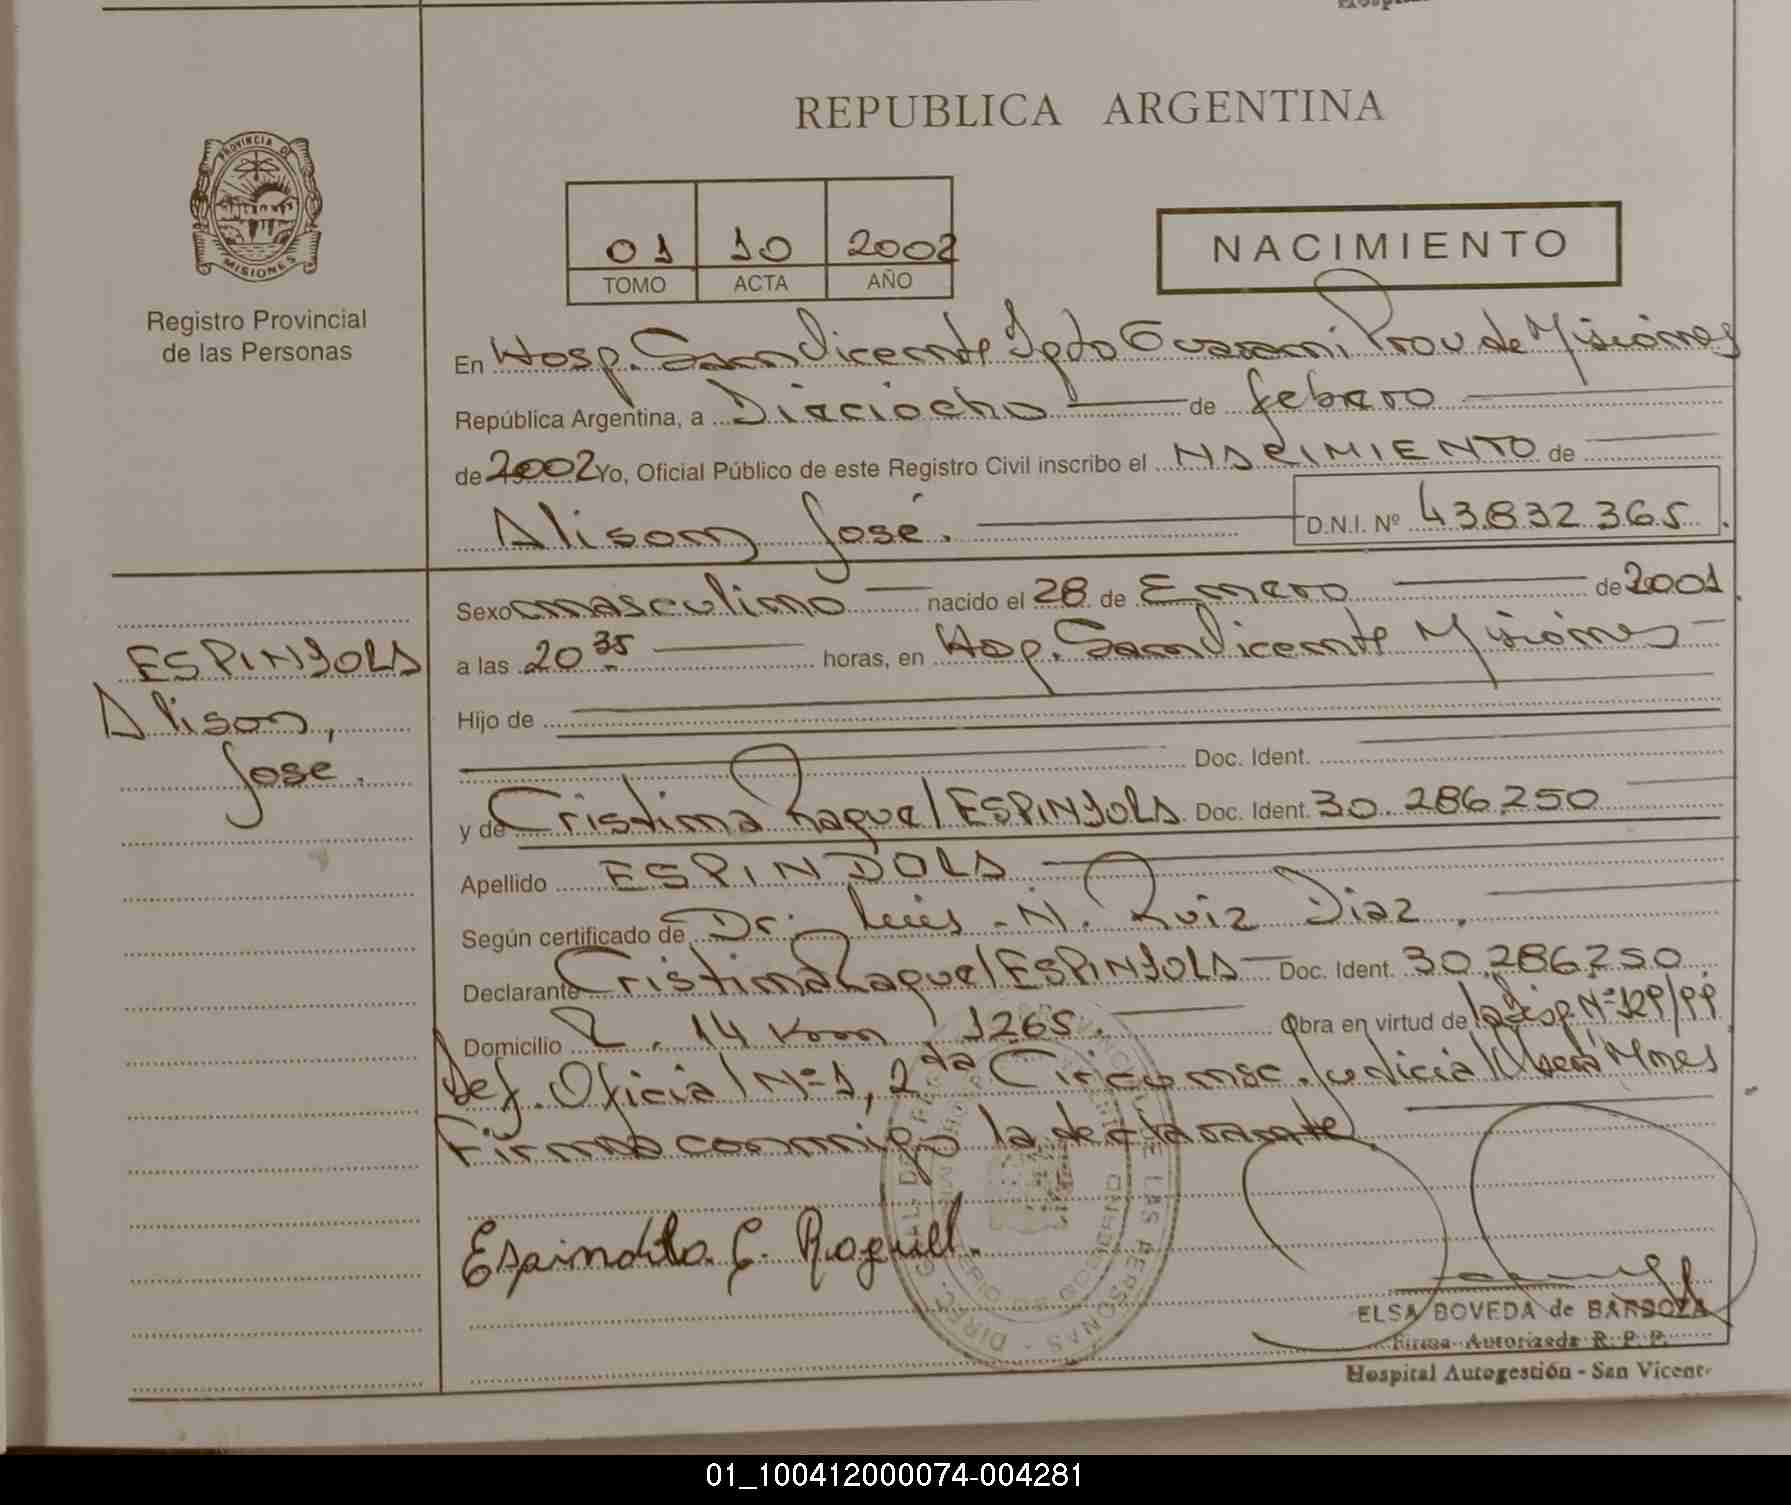 REPUBLICA ARGENTINA
PROVINCIA DE
MISIONES
Registro Provincial
de las Personas
01 10 2002
TOMO ACTA AÑO
NACIMIENTO
En Hosp. San Vicente Dpto Guarani Prov de Misiones
República Argentina, a Dieciocho de febrero
de 2002 Yo, Oficial Público de este Registro Civil inscribo el NACIMIENTO de
Alison José. D.N.I. Nº 43.832.365
Sexo masculino nacido el 28 de Enero de 2001
a las 20 35 horas, en Hosp. San Vicente Misiones
Hijo de
Doc. Ident.
y de Cristina Raquel ESPINDOLA Doc. Ident. 30.286.250
Apellido ESPINDOLA
Según certificado de Dr. Luis N. Ruiz Diaz.
Declarante Cristina Raquel ESPINDOLA Doc. Ident. 30.286.250
Domicilio R. 14 Km 1265. Obra en virtud de la Disp Nº
Def. Oficial Nº 1, 2da Circunsc. Judicial Oberá Mnes
Firma conmigo la declarante
ESPINDOLA
Alison,
José.
Espindola C. Raquel.
DE LAS PERSONAS - DIREC. GRAL. DE
ELSA BOVEDA de BARBOZA
Firma Autorizada R. P. P.
Hospital Autogestión - San Vicente
01_100412000074-004281